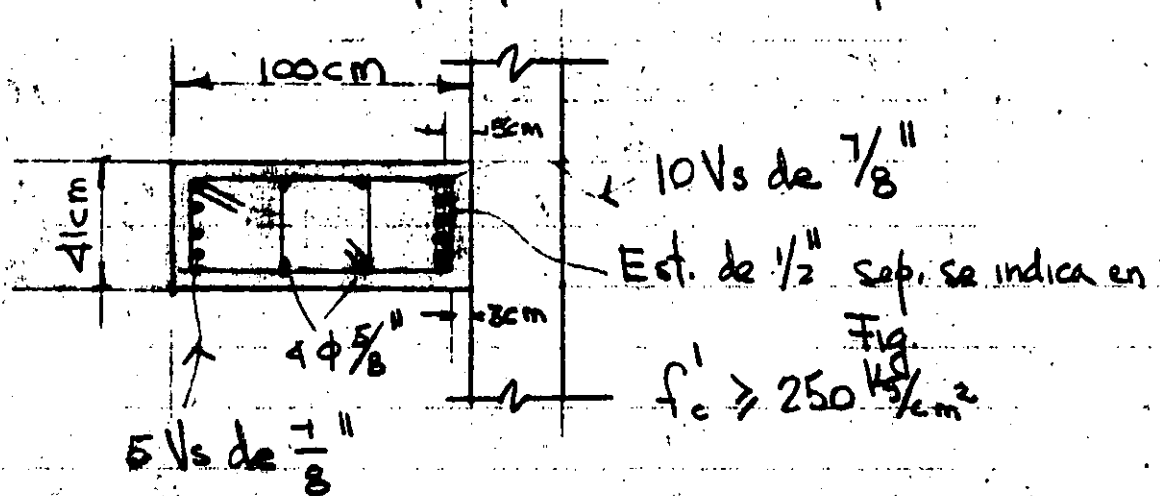 100cm
5cm
10 Vs de 7/8"
41cm
Est. de 1/2" sep. se indica en
Fig.
3cm
4 φ 5/8"
f'c ≥ 250 kg/cm²
5 Vs de 7/8"